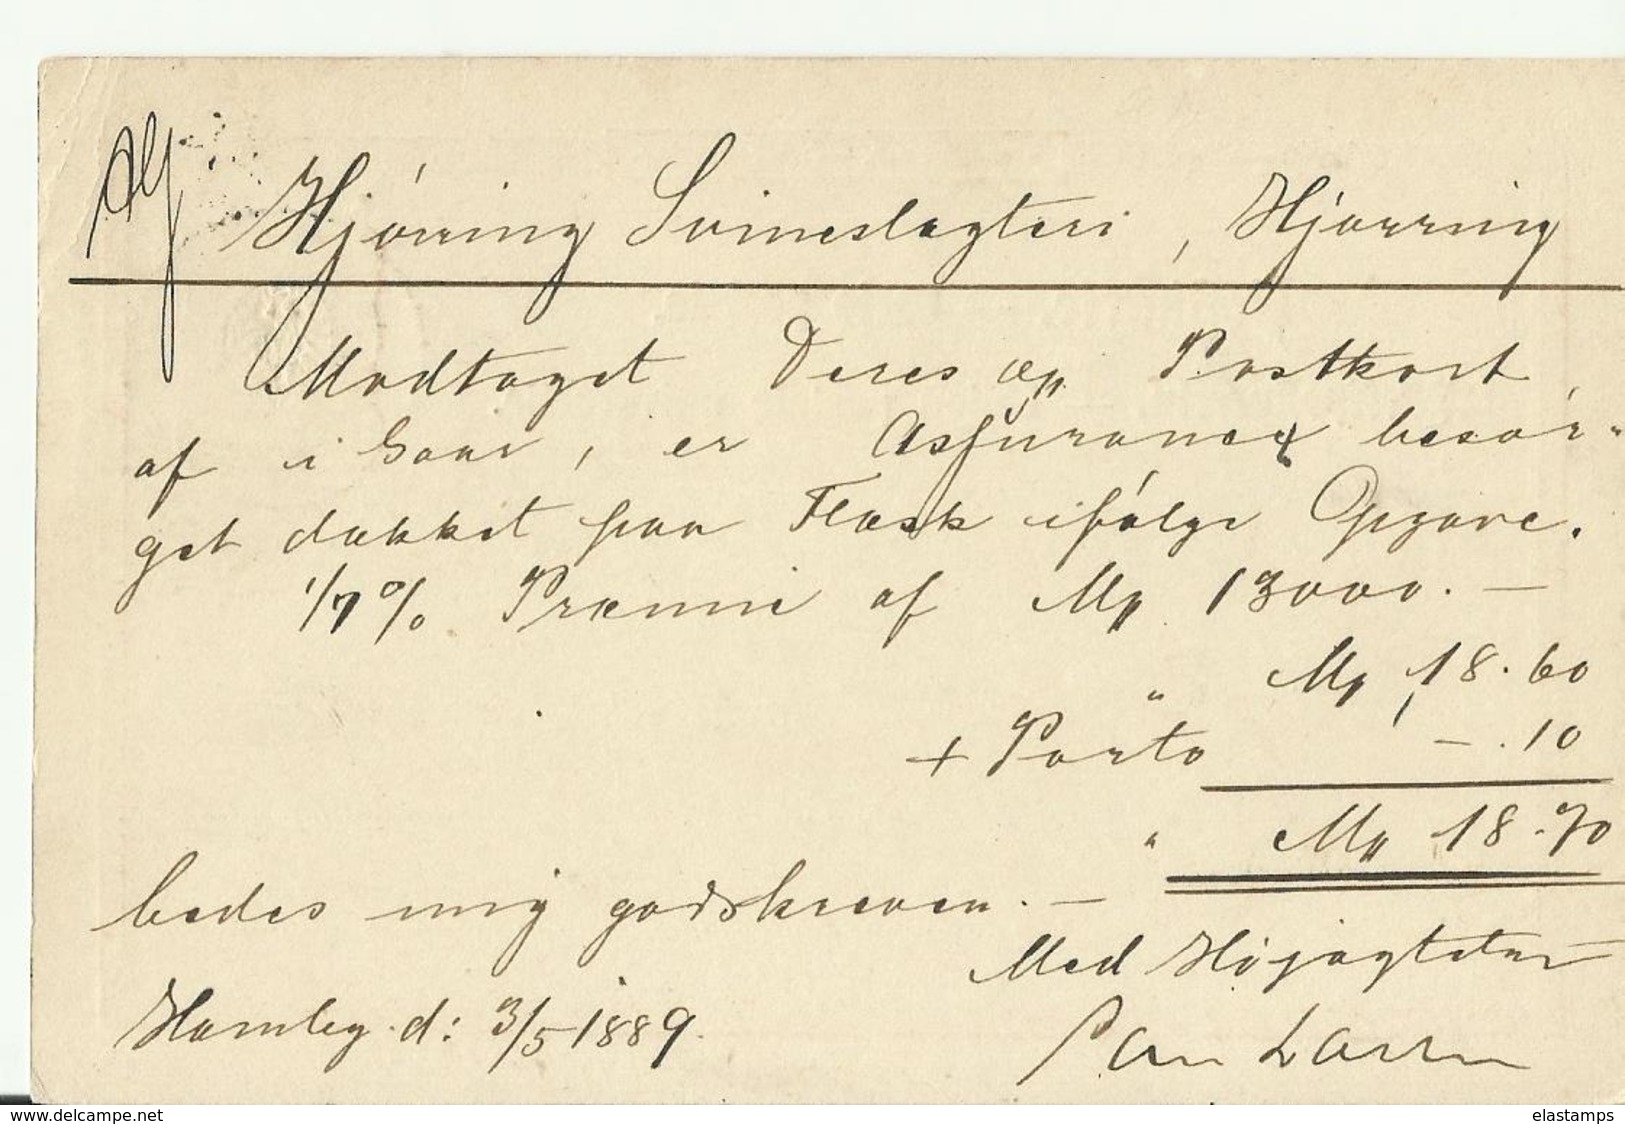 Hjórring Svineslagteri, Hjørring
Modtaget Deres Postkort
af i Gaar, er Assurance besór-
get dækket paa Flæsk ifólge Opgave.
1/7 % Præmie af Mk 13000.—
" Mk 18.60
+ Porto —.10
" Mk 18.70
bedes mig godskreven.—
Med Höjagtelse
d: 3/5 1889.
www.delcampe.net
elastamps